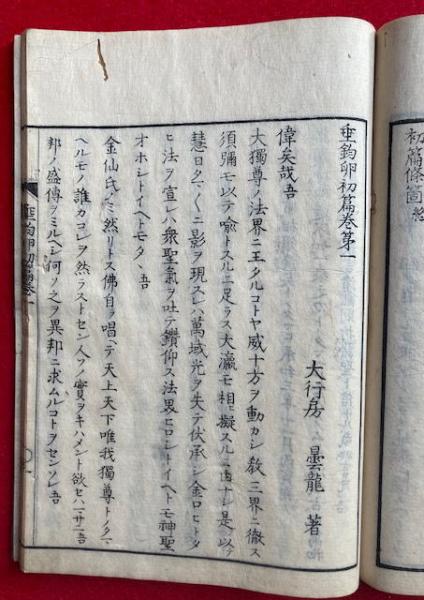 初篇條箇 終
垂鉤卵初篇卷第一
大行房 曇龍 著
偉矣哉吾
大獨尊ノ法界ニ王タルコトヤ威十方ヲ動カシ教三界ニ徹ス
須彌モ以テ喩トスルニ足ラス大瀛モ相ヒ擬スルニ由ナシ是ヲ以テ
慧日タヽヒニ影ヲ現スレハ萬域光ヲ失テ伏承シ金口ヒトタ
ヒ法ヲ宣レハ衆聖氣ヲ吐テ鑽仰ス法界ヒロシトイヘトモ神聖
オホシトイヘトモタ 吾
金仙氏ノミ然リトス佛自ラ唱ヘテ天上天下唯我獨尊トノタマ
ヘルモノ誰カコレヲ然ラストセン人ソノ實ヲキハメント欲セハ吾
邦ノ盛傳ヲミルヘシ何ソ之ヲ異邦ニ求ムルコトヲセンソレ吾
垂鉤卵初篇卷一